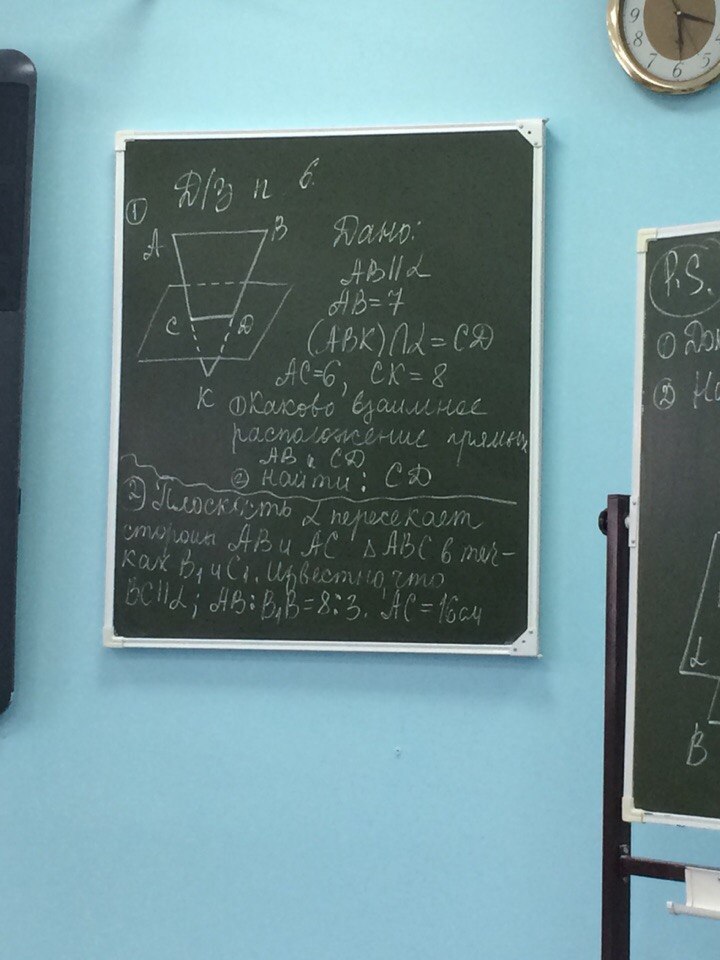 Д/З п 6.
①
A
B
C
D
K
Дано:
AB||α
AB=7
(ABK)∩α=CD
AC=6, CK=8
① Каково взаимное
расположение прямых
AB и CD
② Найти: CD
2) Плоскость α пересекает
стороны AB и AC △ABC в точ-
ках B₁ и C₁. Известно, что
BC||α; AB:B₁B=8:3. AC=16см
9
8
7
6
5
P.S.
①
②
α
B